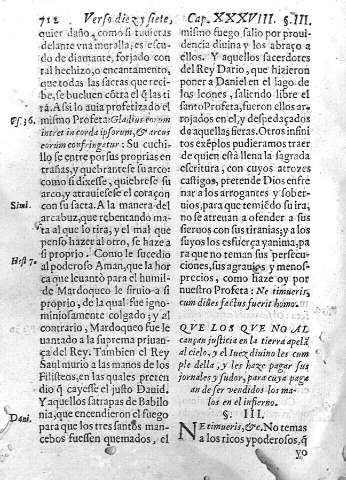 712 Verso diez y siete, Cap. XXXVIII. §. III.
quier daño, como si tuvieras
delante vna muralla, es escu-
do de diamante, forjado con
tal hechizo, o encantamento,
que todas las saetas que reci-
be, se bueluen côtra el q̃ las ti
ra. Asi lo auia profetizado el
Ps. 36. mismo Profeta: Gladius eorum
intret in corda ipsorum, & arcus
eorum confringatur: Su cuchi-
llo se entre por sus proprias en
trañas, y quebrantese su arco:
como si dixesse, quiebrese su
arco, y atrauiesese el coraçon
con su saeta. A la manera del
Simi. arcabuz, que rebentando ma-
ta al que lo tira, y el mal que
penso hazer al otro, se haze a
si proprio. Como le sucedio
Hest 7. al poderoso Aman, que la hor
ca que leuantò para el humil-
de Mardoqueo le siruio a si
proprio, de la qual fue igno-
miniosamente colgado; y al
contrario, Mardoqueo fue le
uantado a la suprema priuan-
ça del Rey. Tambien el Rey
Saul murio a las manos de los
Filisteos, en las quales preten
dio q̃ cayesse el justo Dauid.
Y aquellos satrapas de Babilo
Dani. nia, que encendieron el fuego
para que los tres santos man-
cebos fuessen quemados, el
mismo fuego salio por proui-
dencia diuina y los abraso a
ellos. Y aquellos sacerdotes
del Rey Dario, que hizieron
poner a Daniel en el lago de
los leones, saliendo libre el
santo Profeta, fueron ellos ar-
rojados en el, y despedaçados
de aquellas fieras. Otros infini
tos exẽplos pudieramos traer
de quien està llena la sagrada
escritura, con cuyos atrozes
castigos, pretende Dios enfre
nar a los arrogantes y sober-
uios, para que temiẽdo su ira,
no se atreuan a ofender a sus
sieruos con sus tiranias; y a los
suyos los esfuerça y anima, pa
ra que no teman sus persecu-
ciones, sus agrauios y menos-
precios, como haze oy por
nuestro Profeta: Ne timueris,
cum diues factus fuerit homo.
QVE LOS QVE NO AL
cançan justicia en la tierra apelã
al cielo, y el Iuez diuino les cum
ple della, y les haze pagar sus
jornales y sudor, para cuya paga
an de ser vendidos los ma-
los en el infierno.
§. III.
NE timueris, &c. No temas
a los ricos y poderosos, q̃
yo